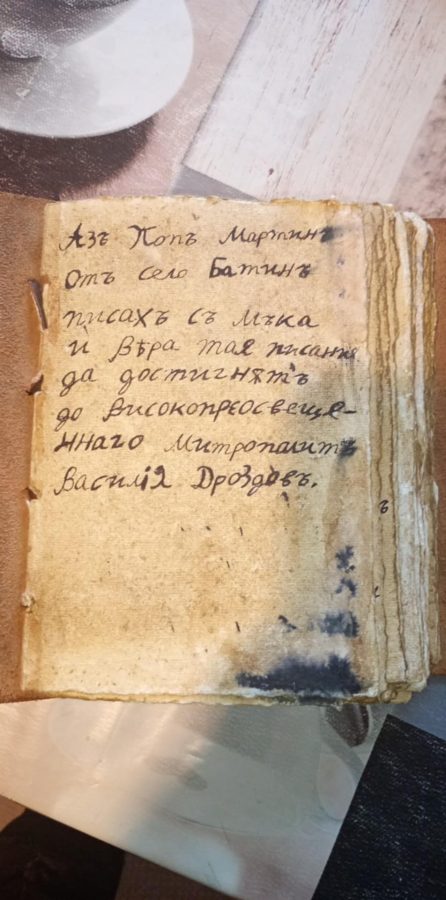 Азъ Попъ Мартинъ
отъ село Батинъ
писахъ съ мъка
и вѣра тая писания
да достигнѫтъ
до високопреосвеще-
ннаго Митрополитъ
Василія Дроздовъ.
ъ